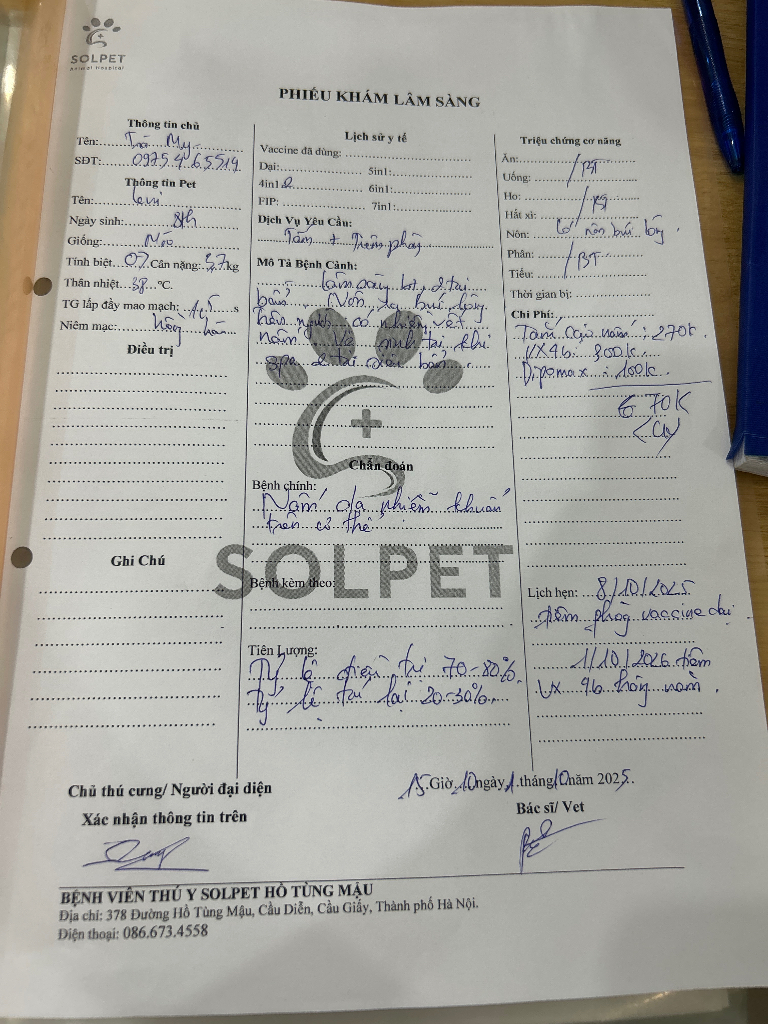 SOLPET
Animal Hospital
PHIẾU KHÁM LÂM SÀNG
Thông tin chủ
Tên: Trà My
SĐT: 0975465519
Thông tin Pet
Tên:
Ngày sinh: 8th
Giống: Mèo
Tính biệt Cân nặng: 3,7 kg
Thân nhiệt: 38 °C.
TG lấp đầy mao mạch: 1,5 s
Niêm mạc: hồng hào
Điều trị
Ghi Chú
Lịch sử y tế
Vaccine đã dùng:
Dại: 5in1:
4in1: 2 6in1:
FIP: 7in1:
Dịch Vụ Yêu Cầu:
Tắm + Tiêm phòng
Mô Tả Bệnh Cảnh:
2 tai
bẩn. Nôn ra búi lông
trên người có nhiều vết
nấm. Vệ sinh tai khi
spa 2 tai bẩn.
Chẩn đoán
Bệnh chính:
Nấm da nhiễm khuẩn
trên cơ thể
SOLPET
Bệnh kèm theo:
Tiên Lượng:
Tỷ lệ điều trị 70-80%.
Tỷ lệ tái lại 20-30%.
Triệu chứng cơ năng
Ăn:
Uống: BT
Ho:
Hắt xì: BT
Nôn: Có nôn búi lông.
Phân:
Tiểu: BT
Thời gian bị:
Chi Phí:
Tắm cạo nấm: 270k
VX4b: 300k.
Dipomax: 100k.
670K
Lịch hẹn: 8/10/2025
tiêm phòng vaccine dại.
1/10/2026 tiêm
VX 4b hàng năm.
Chủ thú cưng/ Người đại diện
Xác nhận thông tin trên
15 Giờ, 10 ngày 1 tháng 10 năm 2025.
Bác sĩ/ Vet
BỆNH VIỆN THÚ Y SOLPET HỒ TÙNG MẬU
Địa chỉ: 378 Đường Hồ Tùng Mậu, Cầu Diễn, Cầu Giấy, Thành phố Hà Nội.
Điện thoại: 086.673.4558